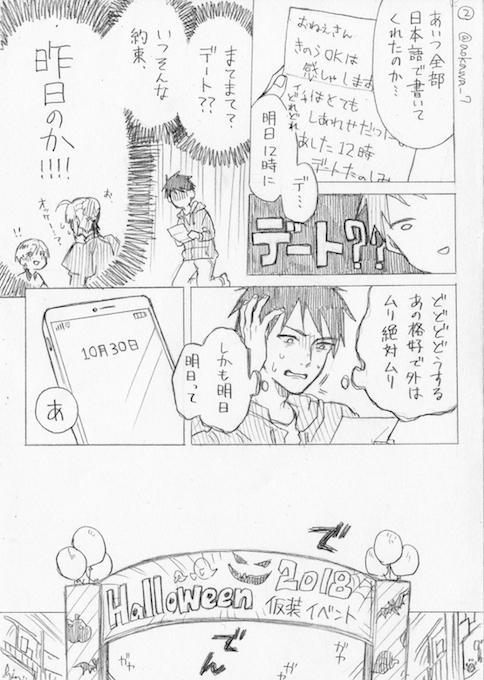 ②
@aokawa_7
あいつ全部
日本語で書いて
くれたのか…
おねえさん
きのうOKは
感しゃします
はとても
しあわせだった
あした12時
デートたのしみ
どれどれ
明日12時に
デ…
デート??
まてまて?
デート??
いつそんな
約束、
昨日のか!!!!
お、
オッケー…?
!!
どどどどうする
あの格好で外は
ムリ絶対ムリ
しかも明日
明日って
10月30日
あ
でで
Halloween 2018
仮装イベント
でん
ガヤ
ガヤ